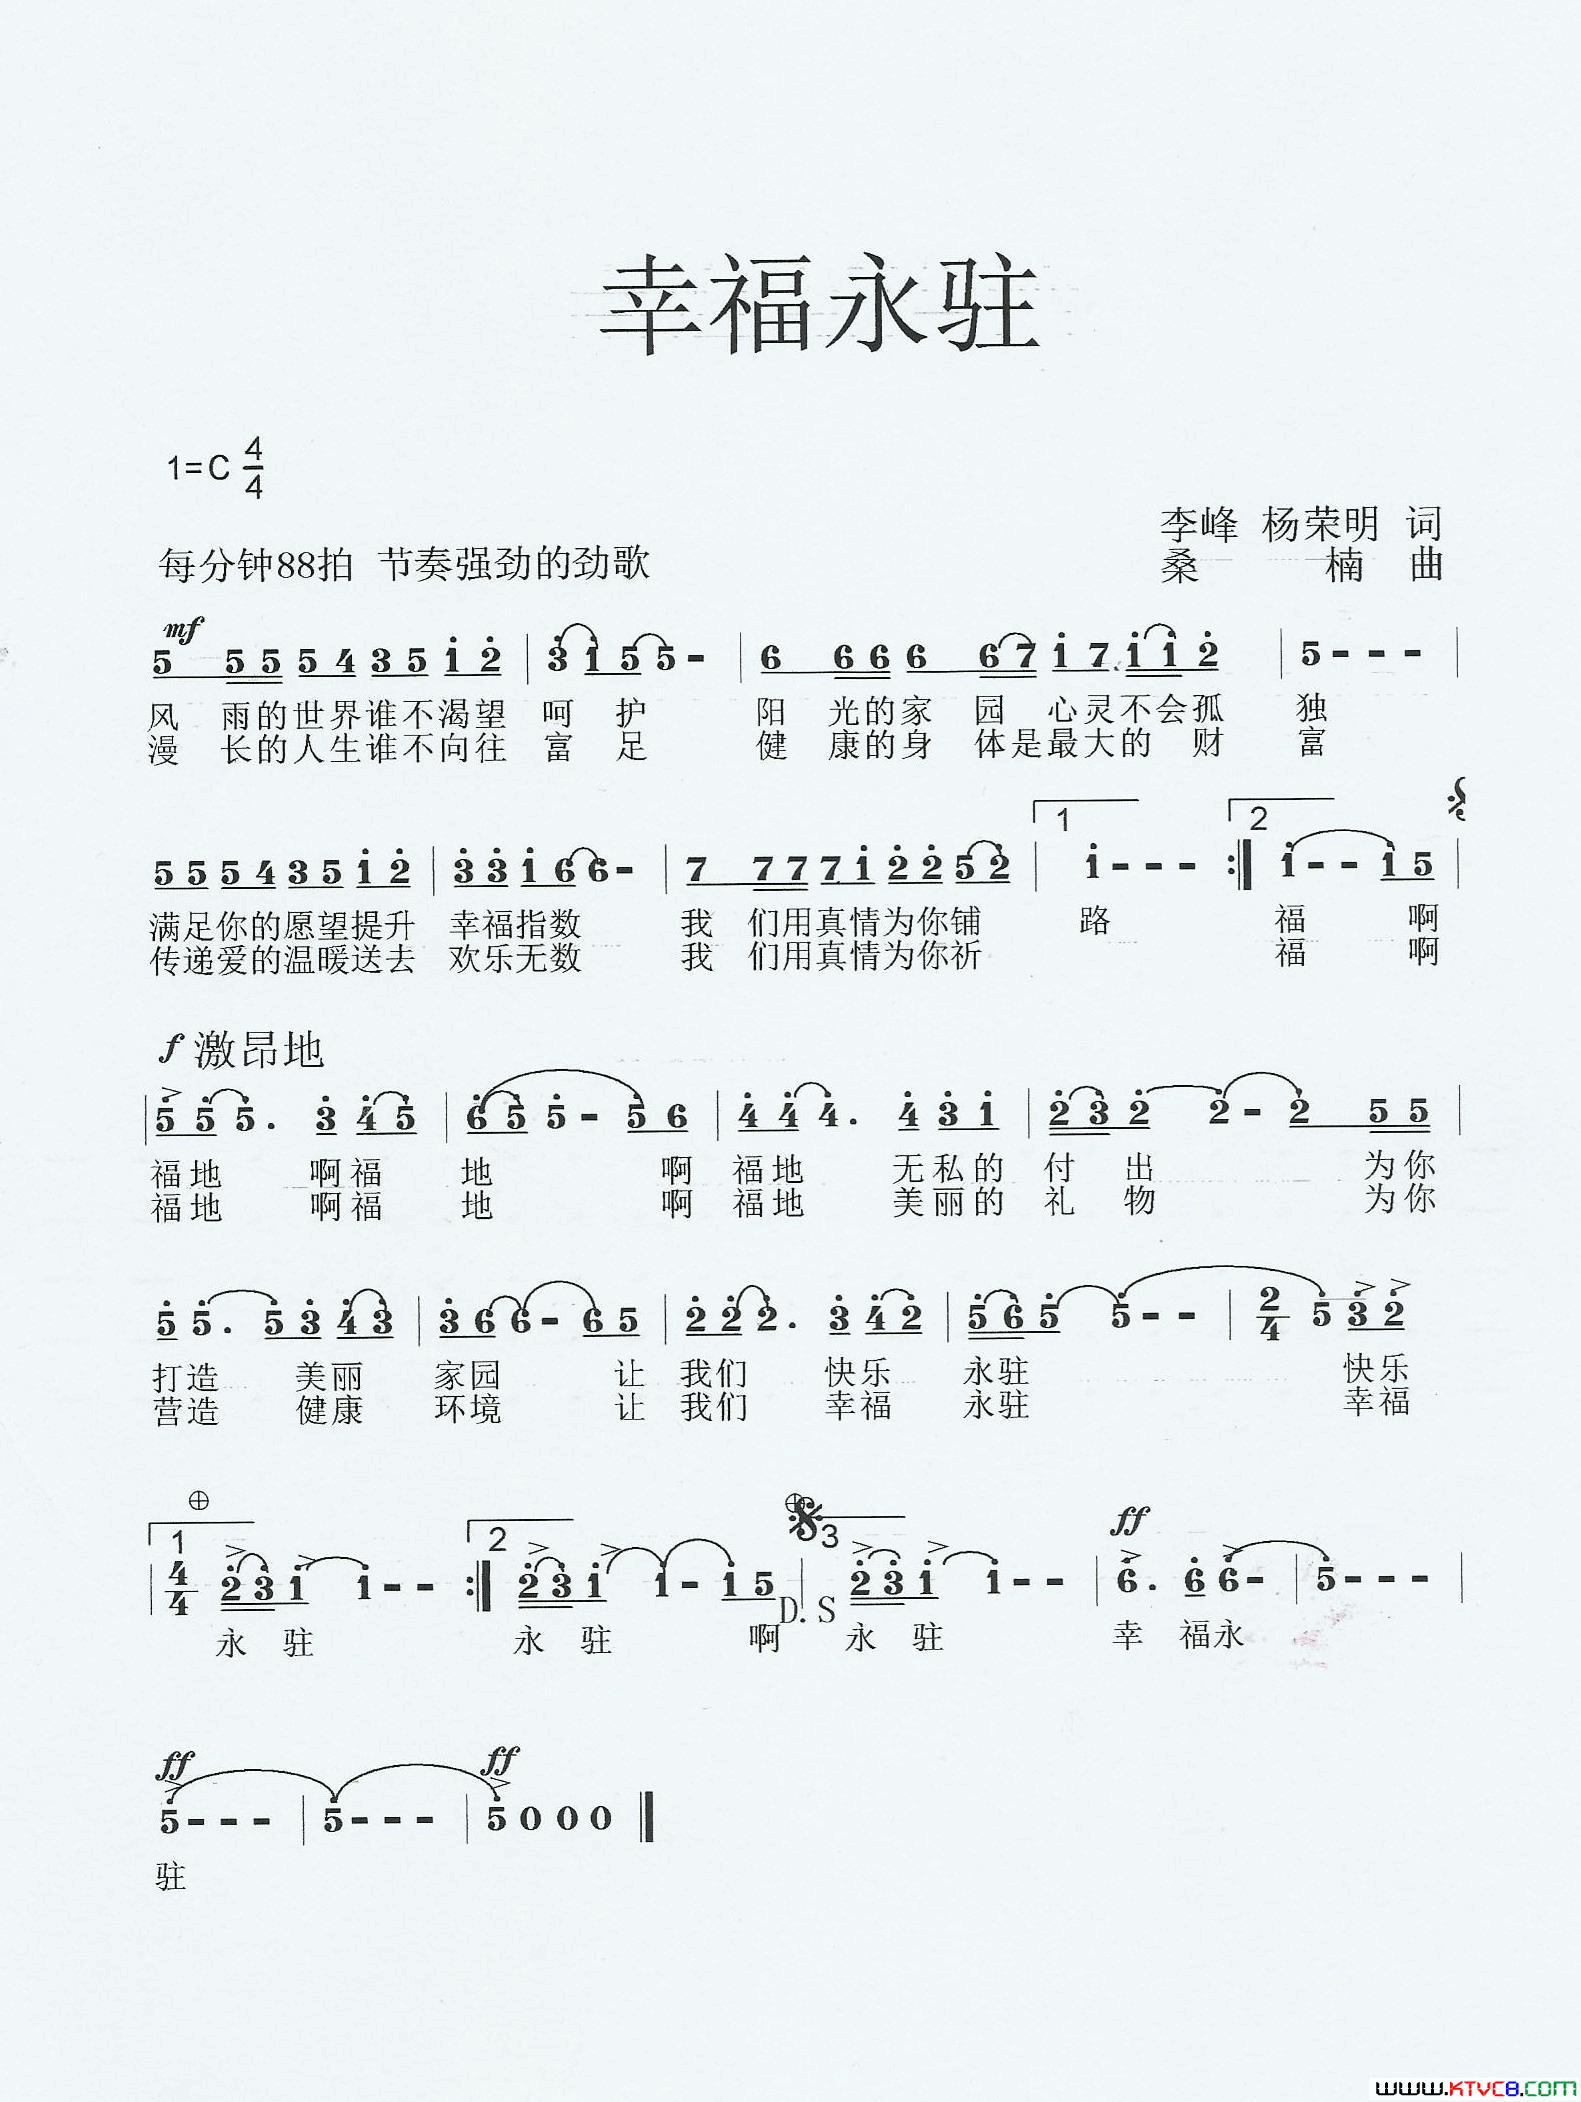 幸福永驻
1=C 4/4
李峰 杨荣明 词
每分钟88拍 节奏强劲的劲歌
桑 楠 曲
mf
5 5 5 5 4 3 5 1 2 | 3 1 5 5 - | 6 6 6 6 6 7 1 7 1 1 2 | 5 - - - |
风 雨的世界谁不渴望 呵 护 阳 光的家 园 心灵不会孤 独
漫 长的人生谁不向往 富 足 健 康的身 体是最大的 财 富
1 2
5 5 5 4 3 5 1 2 | 3 3 1 6 6 - | 7 7 7 7 1 2 2 5 2 | 1 - - - :| 1 - - 1 5 |
满足你的愿望提升 幸福指数 我 们用真情为你铺 路 福 啊
传递爱的温暖送去 欢乐无数 我 们用真情为你祈 福 啊
f 激昂地
| 5 5 5 . 3 4 5 | 6 5 5 - 5 6 | 4 4 4 . 4 3 1 | 2 3 2 2 - 2 5 5 |
福地 啊福 地 啊 福地 无私的 付 出 为你
福地 啊福 地 啊 福地 美丽的 礼 物 为你
5 5 . 5 3 4 3 | 3 6 6 - 6 5 | 2 2 2 . 3 4 2 | 5 6 5 5 - - | 2/4 5 3 2
打造 美丽 家园 让 我们 快乐 永驻 快乐
营造 健康 环境 让 我们 幸福 永驻 幸福
1 2 3 ff
| 4/4 2 3 1 1 - - :| 2 3 1 1 - 1 5 | 2 3 1 1 - - | 6 . 6 6 - | 5 - - - |
D.S
永 驻 永 驻 啊 永 驻 幸 福永
ff ff
5 - - - | 5 - - - | 5 0 0 0 ‖
驻
www.KTVC8.COM